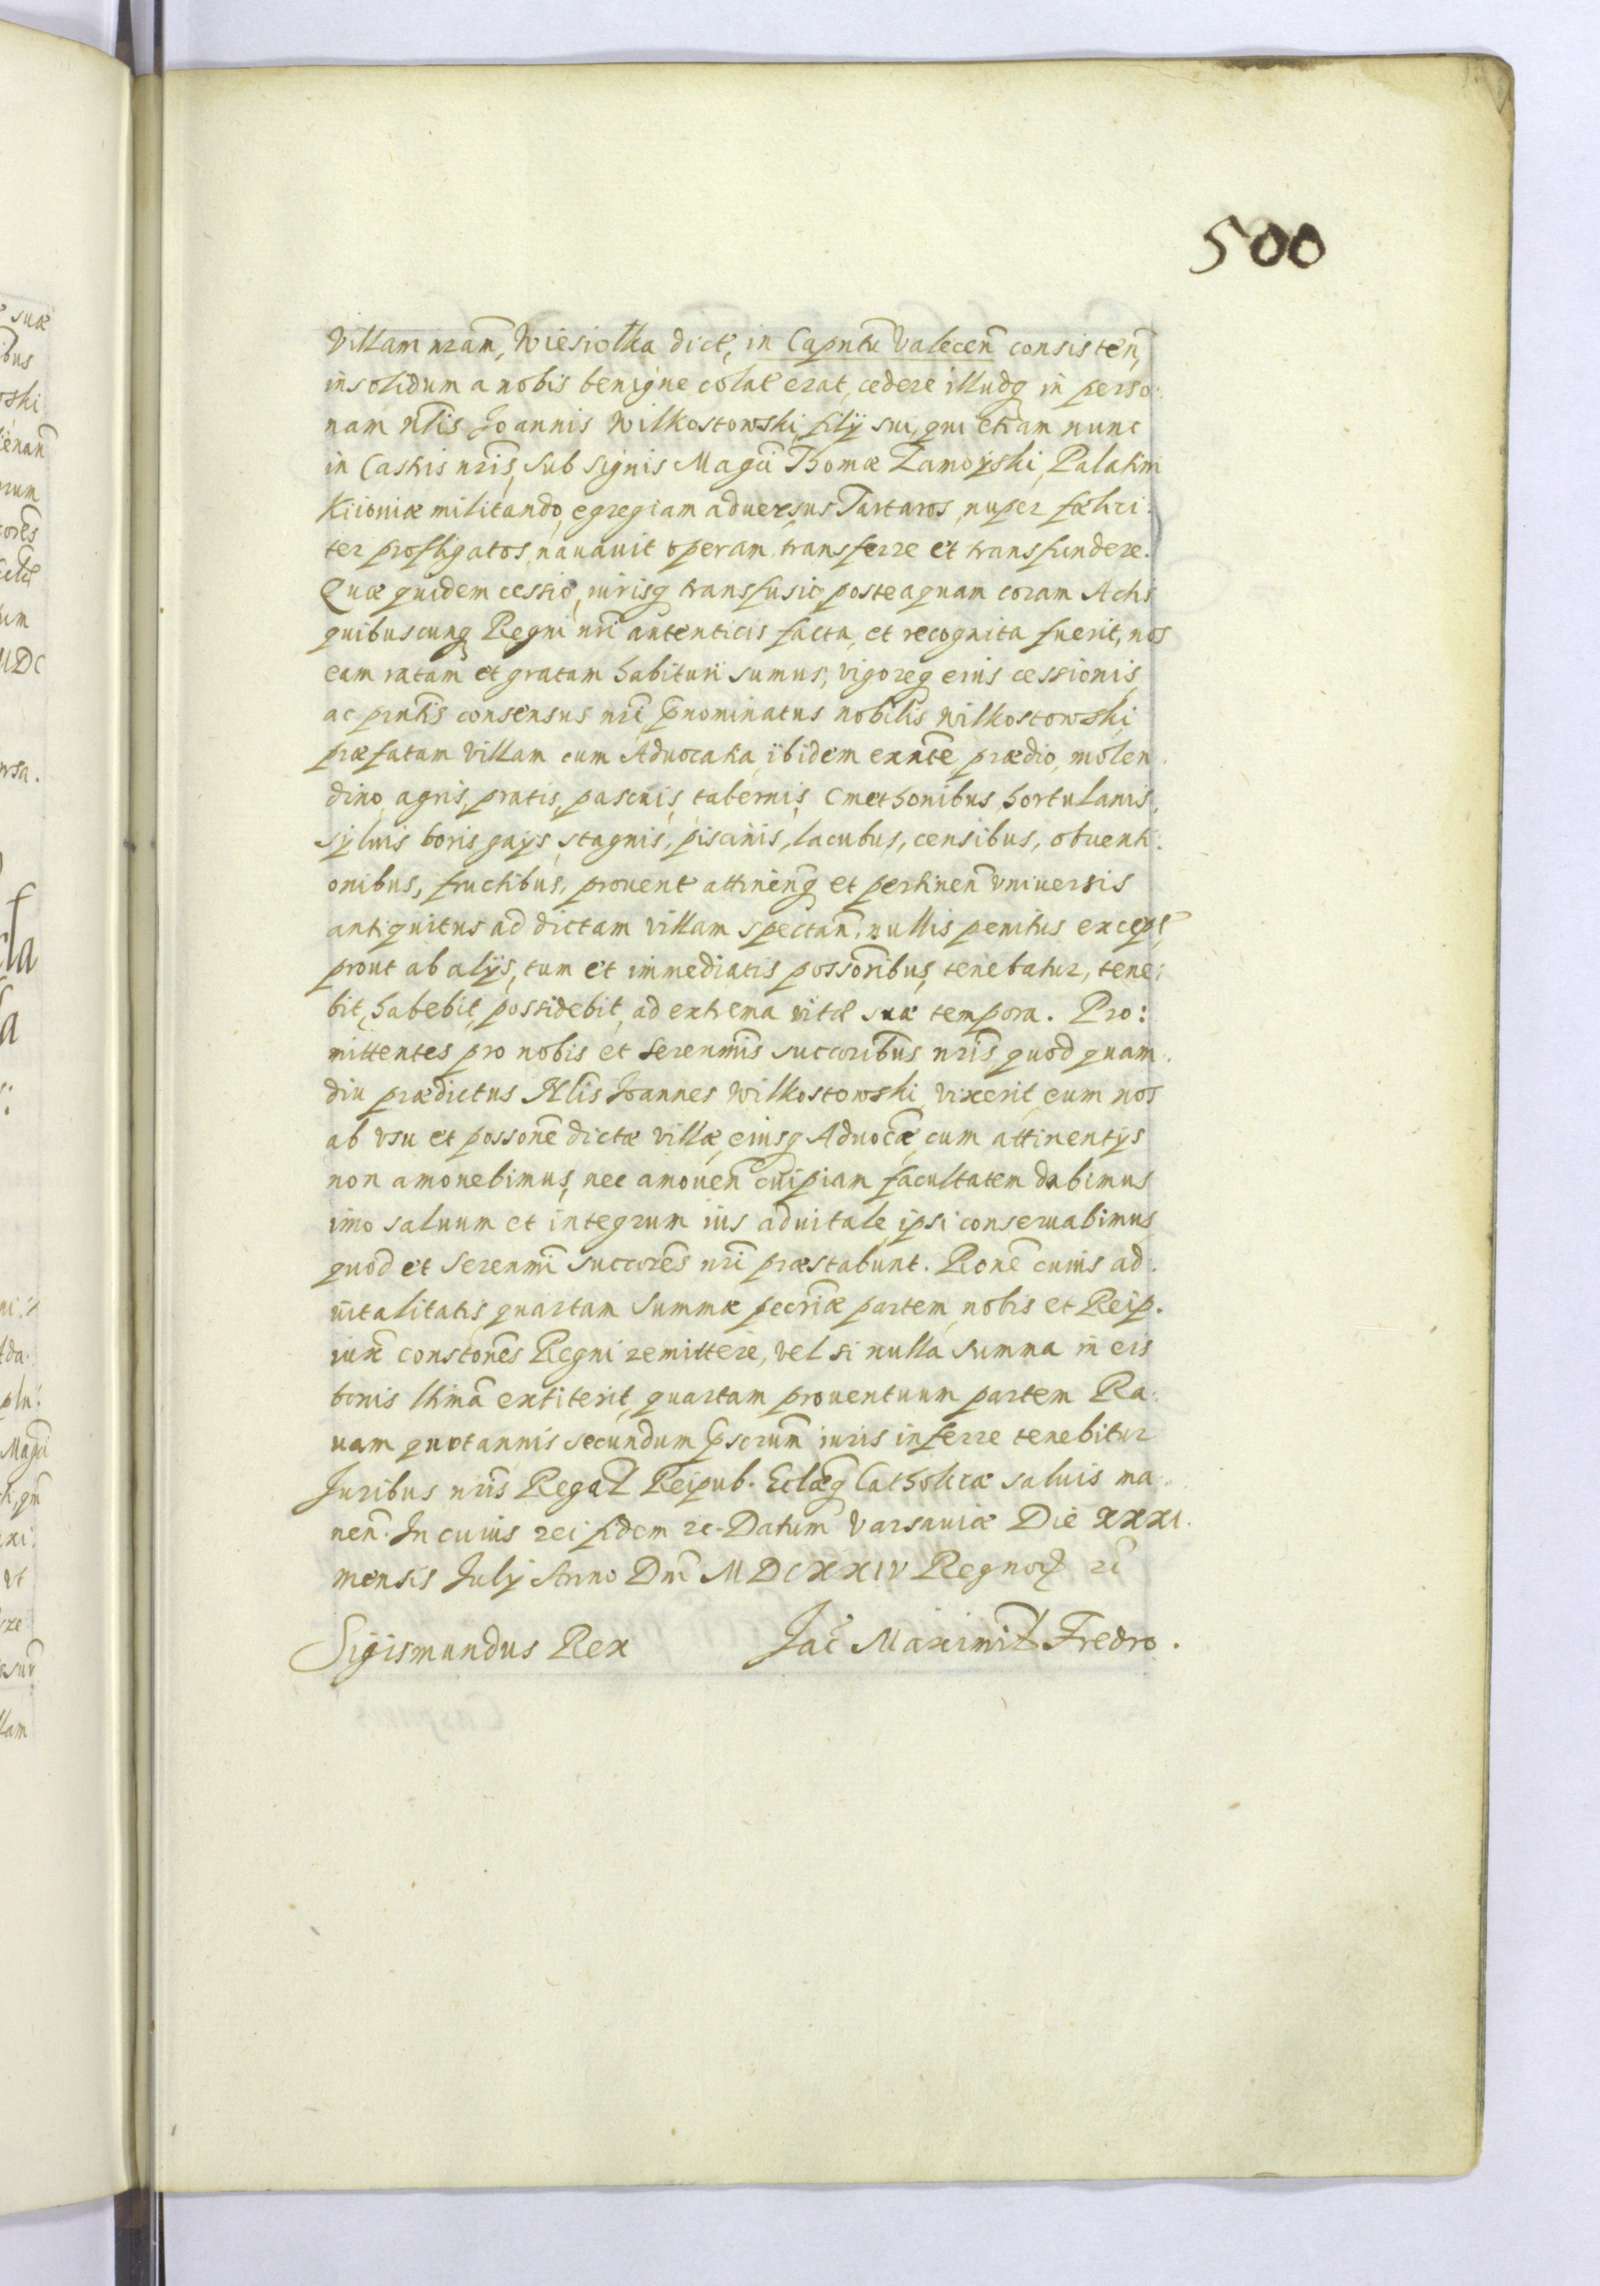 500
Villam nrãm, Wiesiolka dict, in Capntu Valecen̄ consisten̄,
insolidum a nobis benigne colat erat, cedere illudq in perso:
nam Nlis Joannis Wilkostowski filij sui, qui etiam nunc
in Castris nris, sub signis Magci Thomæ Zamoyski, Palatini
Kiioniæ militando, egregiam aduersus Tartaros, nuper fœlici:
ter profligatos, nauauit operam transferre et transfundere.
Quæ quidem cessio, iurisq transfusio posteaquam coram Actis
quibuscunq Regni nri autenticis facta, et recognita fuerit, nos
eam ratam et gratam habituri sumus, vigoreq eius cessionis
ac pntis consensus nri pnominatus nobilis Wilkostowski
præfatam Villam cum Aduocatia ibidem exnte prædio, molen
dino, agris, pratis, pascuis, tabernis, Cmethonibus hortulanis,
syluis boris gays, stagnis, piscinis, lacubus, censibus, obuenti:
onibus, fructibus, prouent attinen̄q et pertinen̄ vniuersis
antiquitus ad dictam villam spectan̄, nullis penitus except,
prout ab alijs, tum et immediatis possoribus, tenebatur, tene:
bit, habebit, possidebit, ad extrema vitæ suæ tempora. Pro:
mittentes pro nobis et Serenmis succoribus nris quod quam
diu prædictus Nlis Joannes Wilkostowski vixerit, eum nos
ab vsu et possone dictæ villæ, eiusq Aduocæ, cum attinentijs
non amouebimus, nec amouen̄ cuipiam facultatem dabimus
imo saluum et integrum ius aduitale ipsi conseruabimus
quod et Serenmi succores nri præstabunt. Rone cuius ad:
uitalitatis quartam summæ pecriæ partem nobis et Reip.
iux constones Regni remittere, vel si nulla summa in eis
bonis ltima extiterit, quartam prouentuum partem Ra:
uam quotannis secundum pscrum iuris inferre tenebitur
Juribus nris Regal Reipub. Eclæq Catholicæ saluis ma
nen̄. In cuius rei fidem rc. Datum Varsauiæ Die XXXI.
mensis July Anno Dni MDCXXIV Regnor rc
Sigismundus Rex Jac Maximil Fredro.